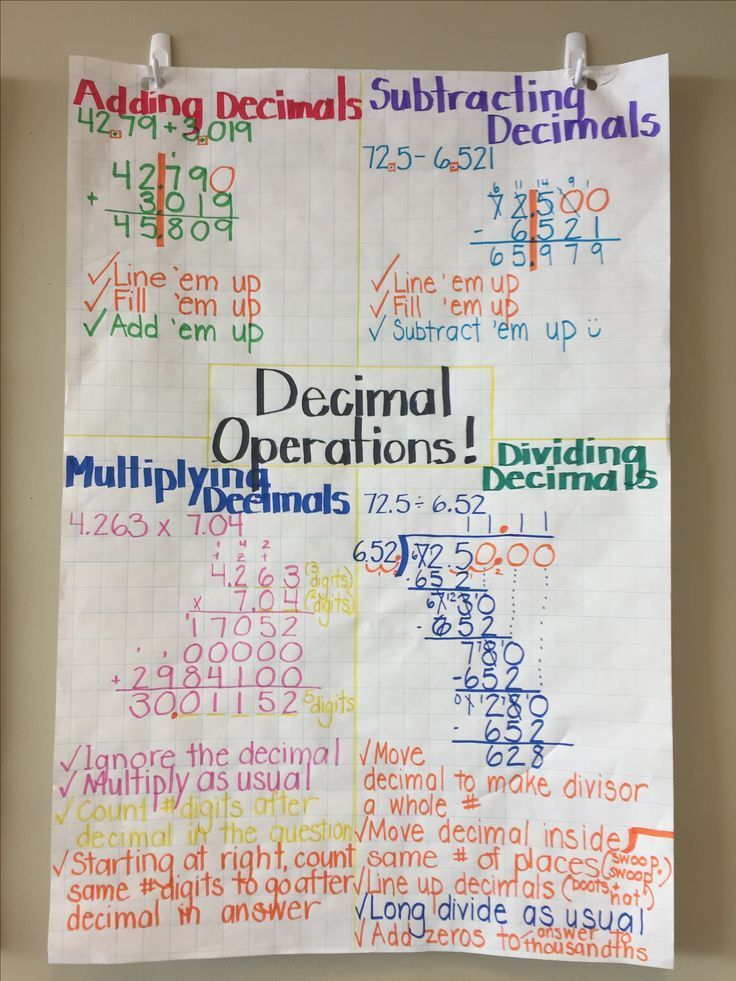 Adding Decimals
42.79 + 3.019
42.790
+ 3.019
45.809
✓Line 'em up
✓Fill 'em up
✓Add 'em up
Subtracting
Decimals
72.5 - 6.521
6 11 14 9 1
72.500
- 6.521
65.979
✓Line 'em up
✓Fill 'em up
✓Subtract 'em up
Decimal
Operations!
Multiplying
Decimals
4.263 x 7.04
4.263 (3 digits)
x 7.04 (2 digits)
17052
00000
+ 2984100
30.01152 5 digits
✓Ignore the decimal
✓Multiply as usual
✓Count # digits after
decimal in the question
✓Starting at right, count
same # digits to go after
decimal in answer
Dividing
Decimals
72.5 ÷ 6.52
11.11
6.52.)7250.00
-652
730
-652
780
-652
1280
-652
628
✓Move
decimal to make divisor
a whole #
✓Move decimal inside
same # of places (swoop, swoop)
✓Line up decimals (boots + hat)
✓Long divide as usual
✓Add zeros to answer to thousandths